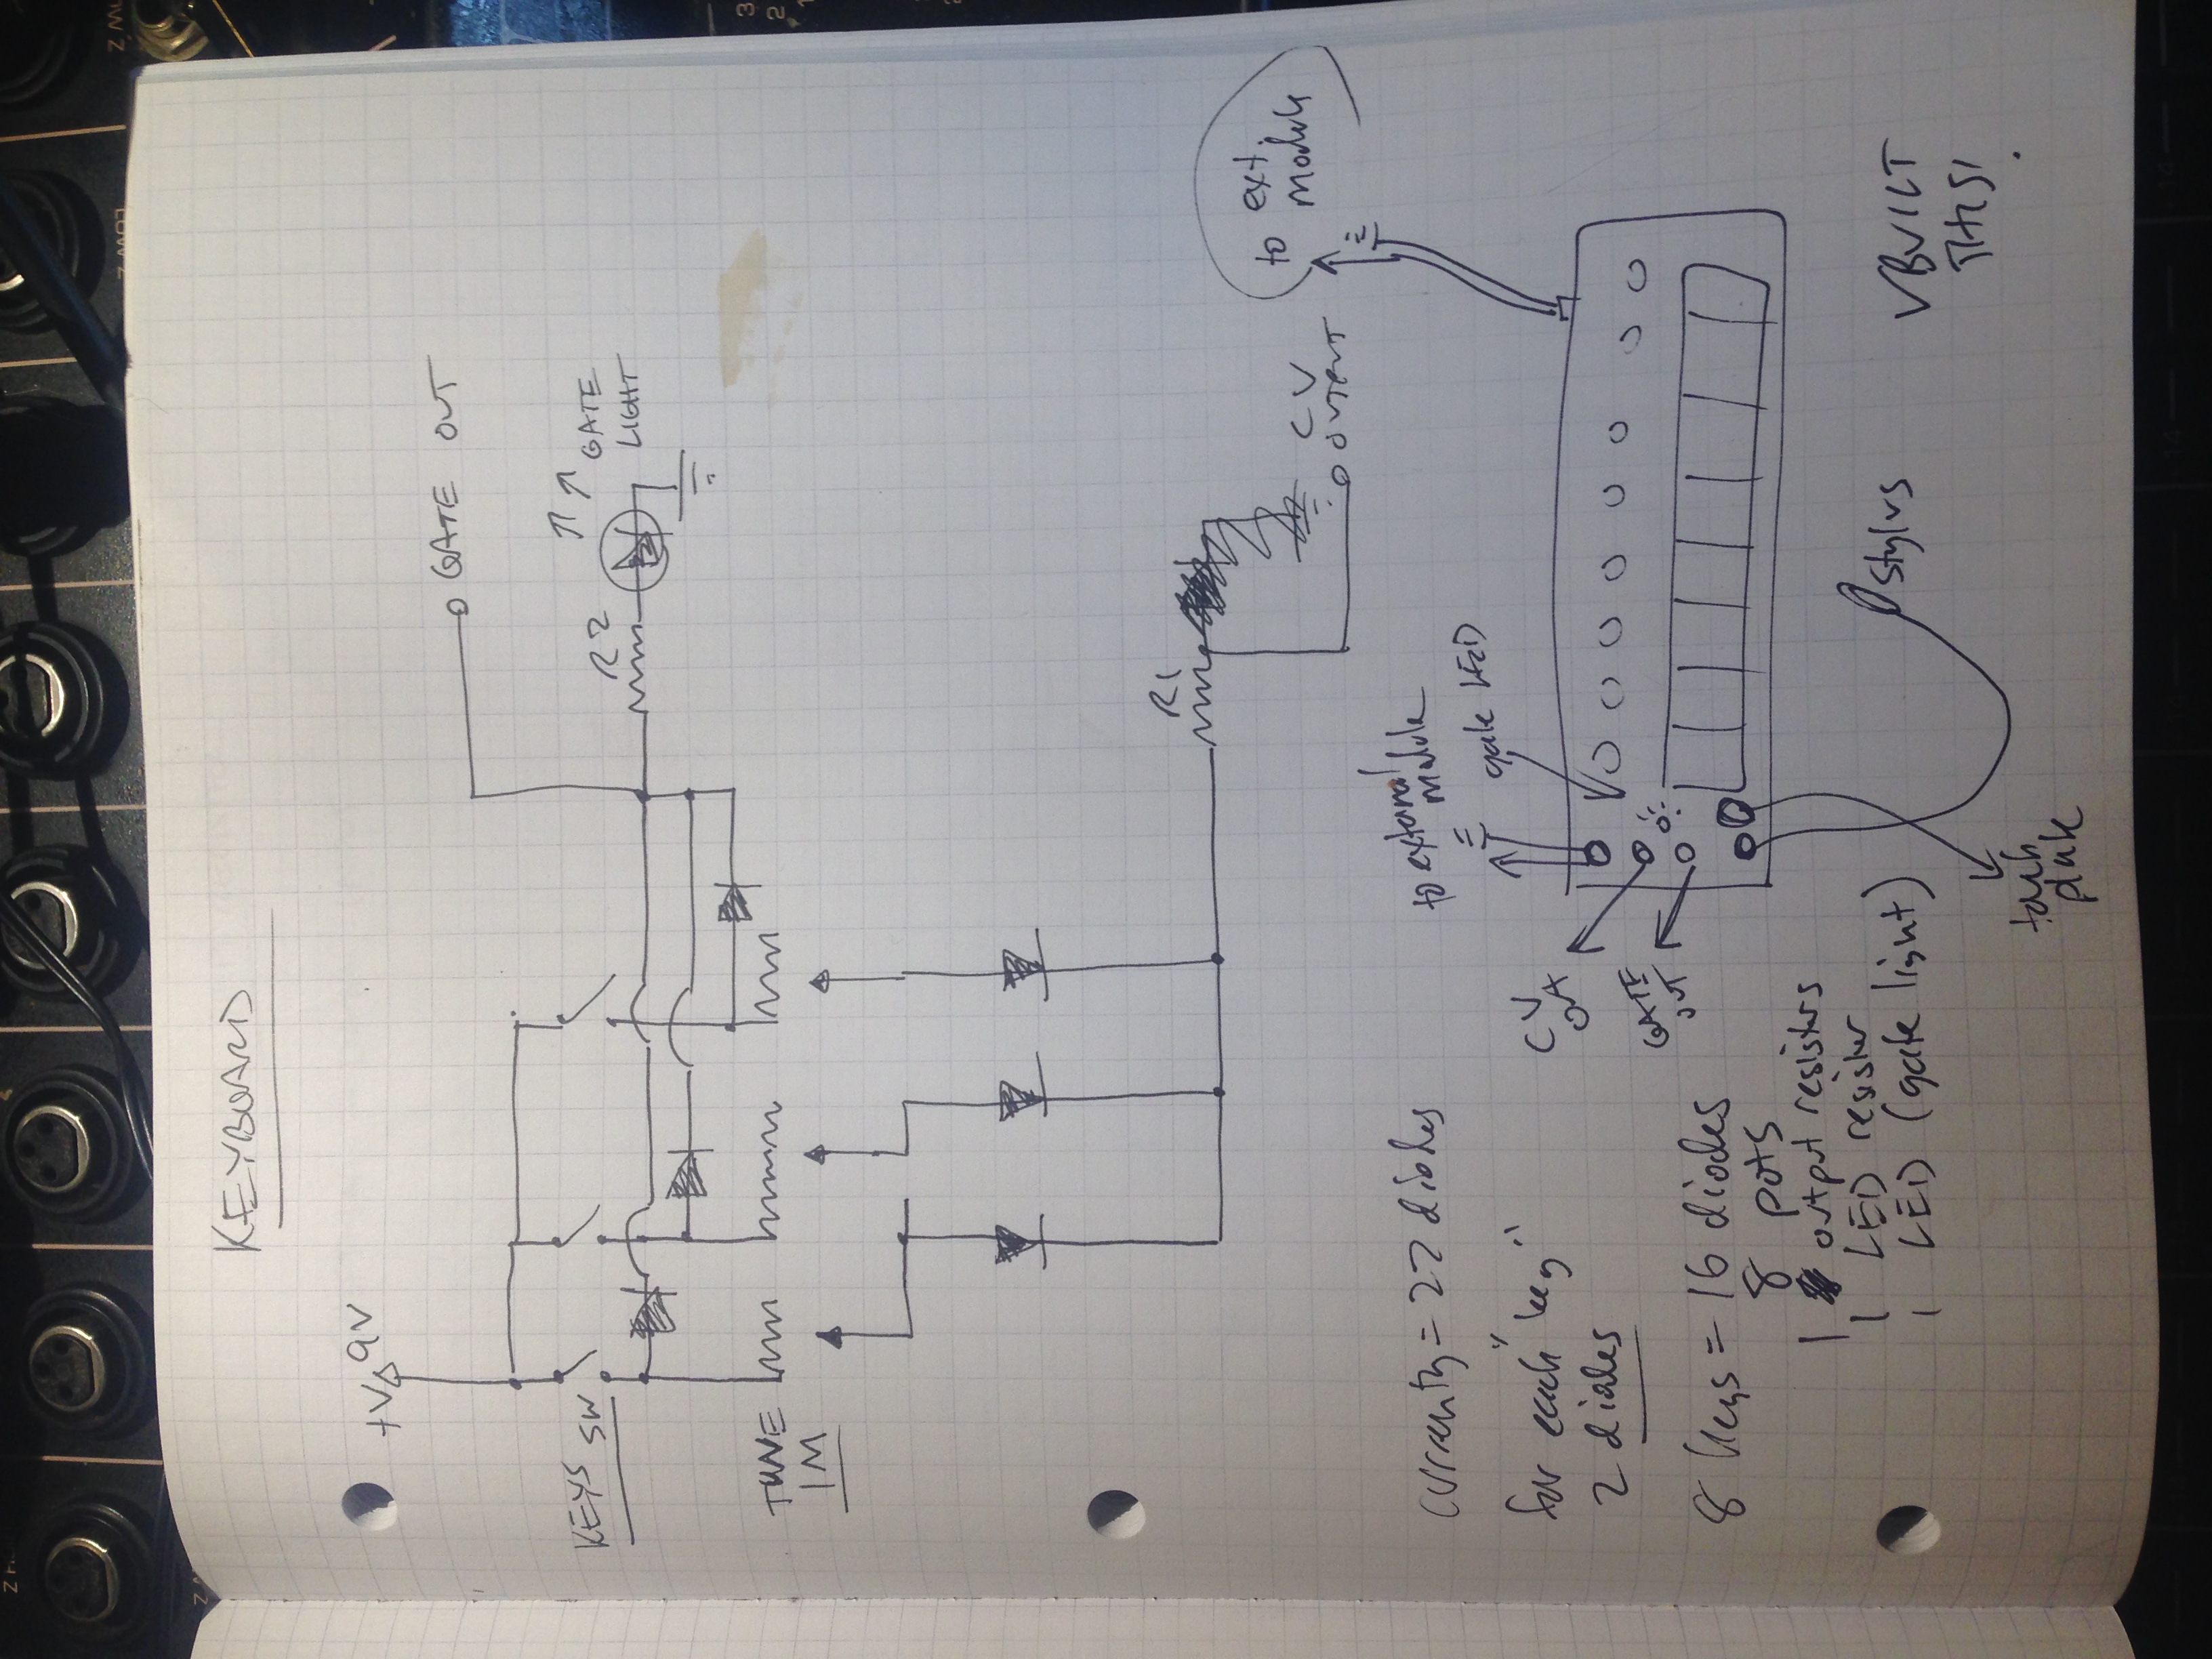 KEYBOARD
+V 9V
GATE OUT
KEYS SW
R2
GATE
LIGHT
TUNE
1M
R1
CV
OUTPUT
to ext.
module
currently = 22 diodes
for each "key"
2 diodes
8 keys = 16 diodes
8 pots
1 output resistors
1 LED resistor
1 LED (gate light)
to external
module
gate LED
CV
OUT
GATE
OUT
stylus
touch
plate
BUILT
THIS!
LOW Z